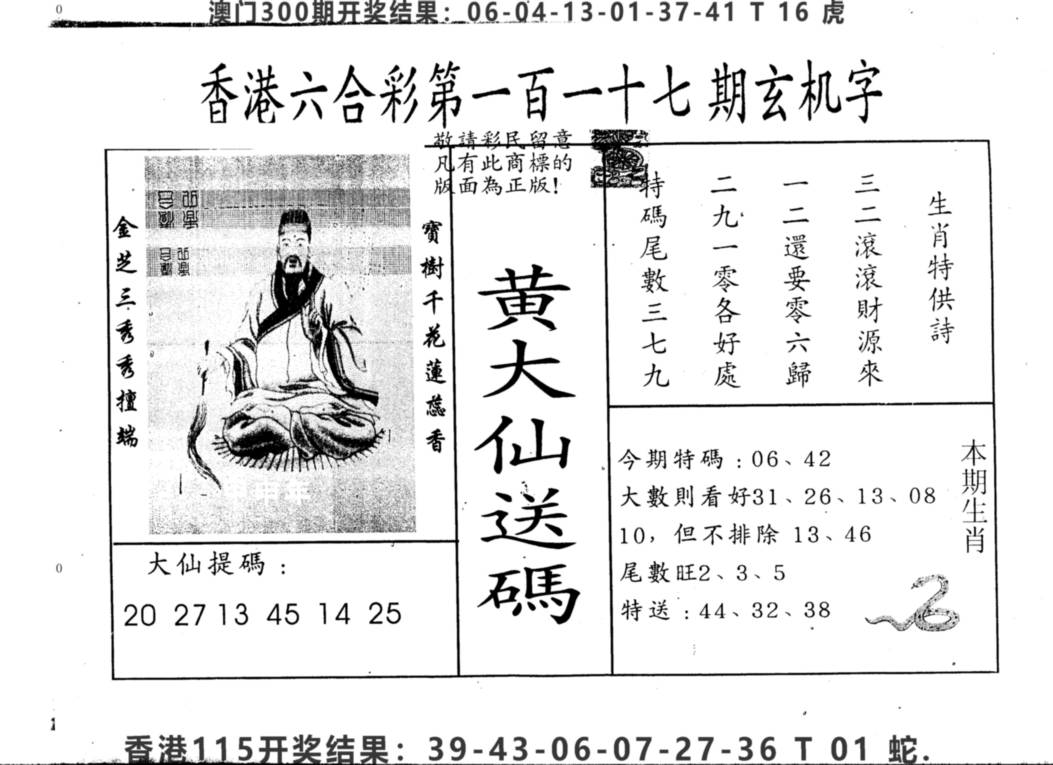 澳门300期开奖结果：06-04-13-01-37-41 T 16 虎
香港六合彩第一百一十七期玄机字
敬請彩民留意
凡有此商標的
版面為正版!
寶樹千花蓮蕊香
金芝三秀秀擅端
大仙提碼：
20 27 13 45 14 25
黄大仙送碼
生肖特供詩
三二滾滾財源來
一二還要零六歸
二九一零各好處
特碼尾數三七九
本期生肖
今期特碼：06、42
大數則看好31、26、13、08
10，但不排除 13、46
尾數旺2、3、5
特送：44、32、38
香港115开奖结果：39-43-06-07-27-36 T 01 蛇.